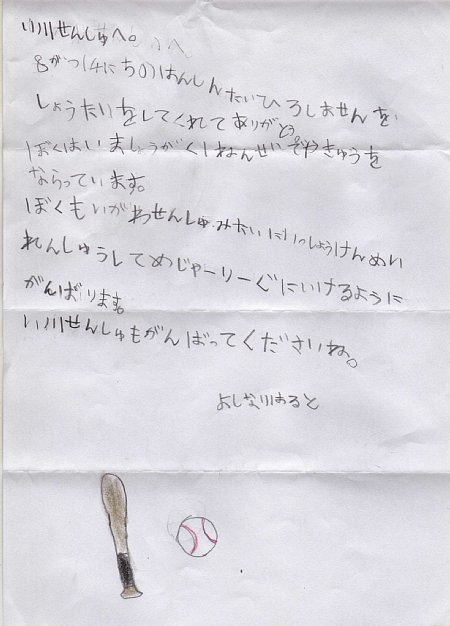 い川せんしゅへ。
8がつ14にちのはんしんたいひろしませんを
しょうたいをしてくれてありがとう。
ぼくはいましょうがく1ねんせいでやきゅうを
ならっています。
ぼくもいがわせんしゅみたいにいっしょうけんめい
れんしゅうしてめじゃーりーぐにいけるように
がんばります。
い川せんしゅもがんばってくださいね。
よしなりはると